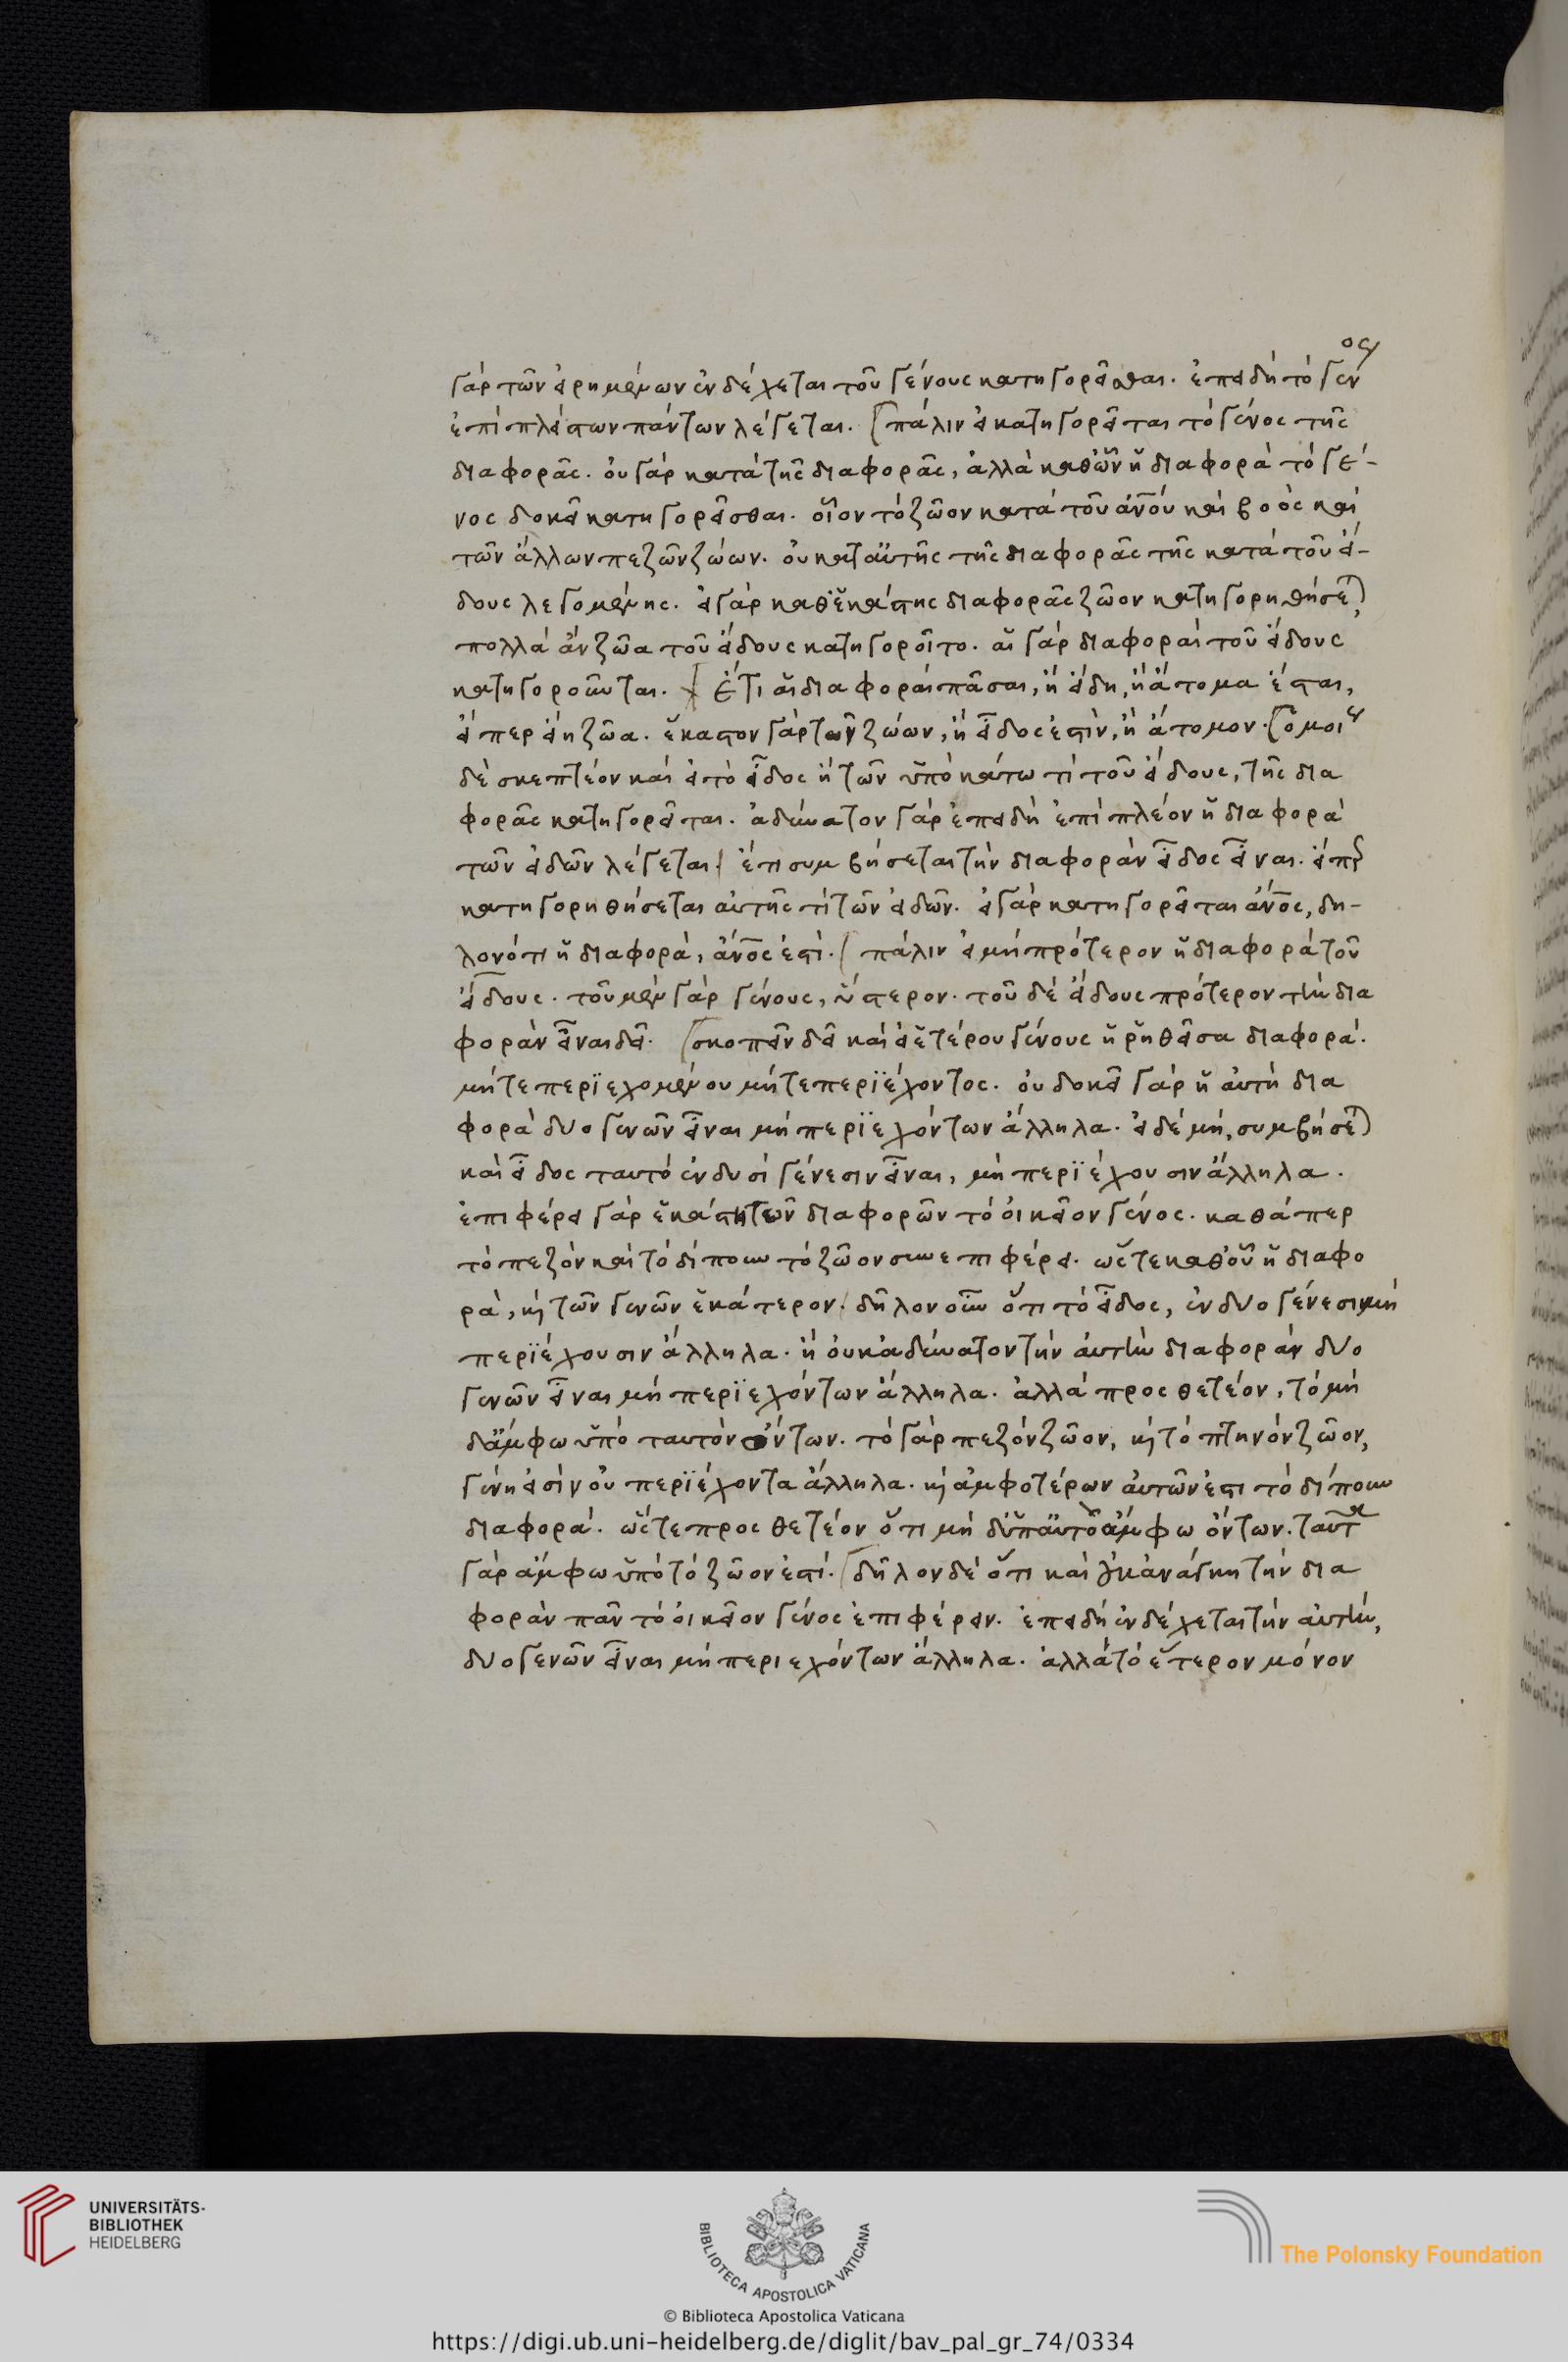 γὰρ τῶν εἰρημένων ἐνδέχεται τοῦ γένους κατηγορεῖσθαι. ἐπειδὴ τὸ γένος
ἐπὶ πλείστων πάντων λέγεται. πάλιν εἰ κατηγορεῖται τὸ γένος τῆς
διαφορᾶς. οὐ γὰρ κατὰ τῆς διαφορᾶς, ἀλλὰ καθ' ὧν ἡ διαφορὰ τὸ γέ-
νος δοκεῖ κατηγορεῖσθαι. οἷον τὸ ζῶον κατὰ τοῦ ἀν̅ο̅υ καὶ βοὸς καὶ
τῶν ἄλλων πεζῶν ζώων. οὐ κατ' αὐτῆς τῆς διαφορᾶς τῆς κατὰ τοῦ εἴ-
δους λεγομένης. εἰ γὰρ καθ' ἑκάστης διαφορᾶς ζῶον κατηγορηθήσεται,
πολλὰ ἂν ζῶα τοῦ εἴδους κατηγοροῖτο. αἱ γὰρ διαφοραὶ τοῦ εἴδους
κατηγοροῦνται. Ἔτι αἱ διαφοραὶ πᾶσαι, ἢ εἴδη, ἢ ἄτομα ἔσται,
εἴπερ εἴη ζῶα. ἕκαστον γὰρ τῶν ζώων, ἢ εἶδος ἐστὶν, ἢ ἄτομον. ὁμοίως
δὲ σκεπτέον καὶ εἰ τὸ εἶδος ἢ τῶν ὑποκάτω τί τοῦ εἴδους, τῆς δια
φορᾶς κατηγορεῖται. ἀδύνατον γὰρ ἐπειδὴ ἐπὶ πλέον ἡ διαφορὰ
τῶν εἰδῶν λέγεται. ἔτι συμβήσεται τὴν διαφορὰν εἶδος εἶναι. εἴπερ
κατηγορηθήσεται αὐτῆς τὶ τῶν εἰδῶν. εἰ γὰρ κατηγορεῖται ἀν̅ο̅ς, δη-
λονότι ἡ διαφορὰ, ἀν̅ο̅ς ἐστὶ. πάλιν εἰ μὴ πρότερον ἡ διαφορὰ τοῦ
εἴδους. τοῦ μὲν γὰρ γένους, ὕστερον. τοῦ δὲ εἴδους πρότερον τὴν δια
φορὰν εἶναι δεῖ. σκοπεῖν δεῖ καὶ εἰ ἑτέρου γένους ἡ ῥηθεῖσα διαφορά.
μήτε περιεχομένου μήτε περιέχοντος. οὐ δοκεῖ γὰρ ἡ αὐτὴ δια
φορὰ δύο γενῶν εἶναι μὴ περιεχόντων ἄλληλα. εἰ δὲ μή, συμβήσεται
καὶ εἶδος ταυτὸ ἐν δυσὶ γένεσιν εἶναι, μὴ περιέχουσιν ἄλληλα.
ἐπιφέρει γὰρ ἑκάστη τῶν διαφορῶν τὸ οἰκεῖον γένος. καθάπερ
τὸ πεζὸν καὶ τὸ δίπουν τὸ ζῶον συνεπιφέρει. ὥστε καθ' οὗ ἡ διαφο
ρὰ, καὶ τῶν γενῶν ἑκάτερον. δῆλον οὖν ὅτι τὸ εἶδος, ἐν δύο γένεσι μὴ
περιέχουσιν ἄλληλα. ἢ οὐκ ἀδύνατον τὴν αὐτὴν διαφορὰν δύο
γενῶν εἶναι μὴ περιεχόντων ἄλληλα. ἀλλὰ προσθετέον, τὸ μὴ
δ' ἄμφω ὑπὸ ταυτὸν ὄντων. τὸ γὰρ πεζὸν ζῶον, καὶ τὸ πτηνὸν ζῶον,
γένη εἰσὶν οὐ περιέχοντα ἄλληλα. καὶ ἀμφοτέρων αὐτῶν ἐστι τὸ δίπουν
διαφορά. ὥστε προσθετέον ὅτι μὴ δ' ὑπ' αὐτὸ ἄμφω ὄντων. ταῦτα
γὰρ ἄμφω ὑπὸ τὸ ζῶον ἐστί. δῆλον δὲ ὅτι καὶ οὐκ ἀνάγκη τὴν δια
φορὰν πᾶν τὸ οἰκεῖον γένος ἐπιφέρειν. ἐπειδὴ ἐνδέχεται τὴν αὐτὴν,
δύο γενῶν εἶναι μὴ περιεχόντων ἄλληλα. ἀλλὰ τὸ ἕτερον μόνον
UNIVERSITÄTS-
BIBLIOTHEK
HEIDELBERG
BIBLIOTECA APOSTOLICA VATICANA
The Polonsky Foundation
© Biblioteca Apostolica Vaticana
https://digi.ub.uni-heidelberg.de/diglit/bav_pal_gr_74/0334